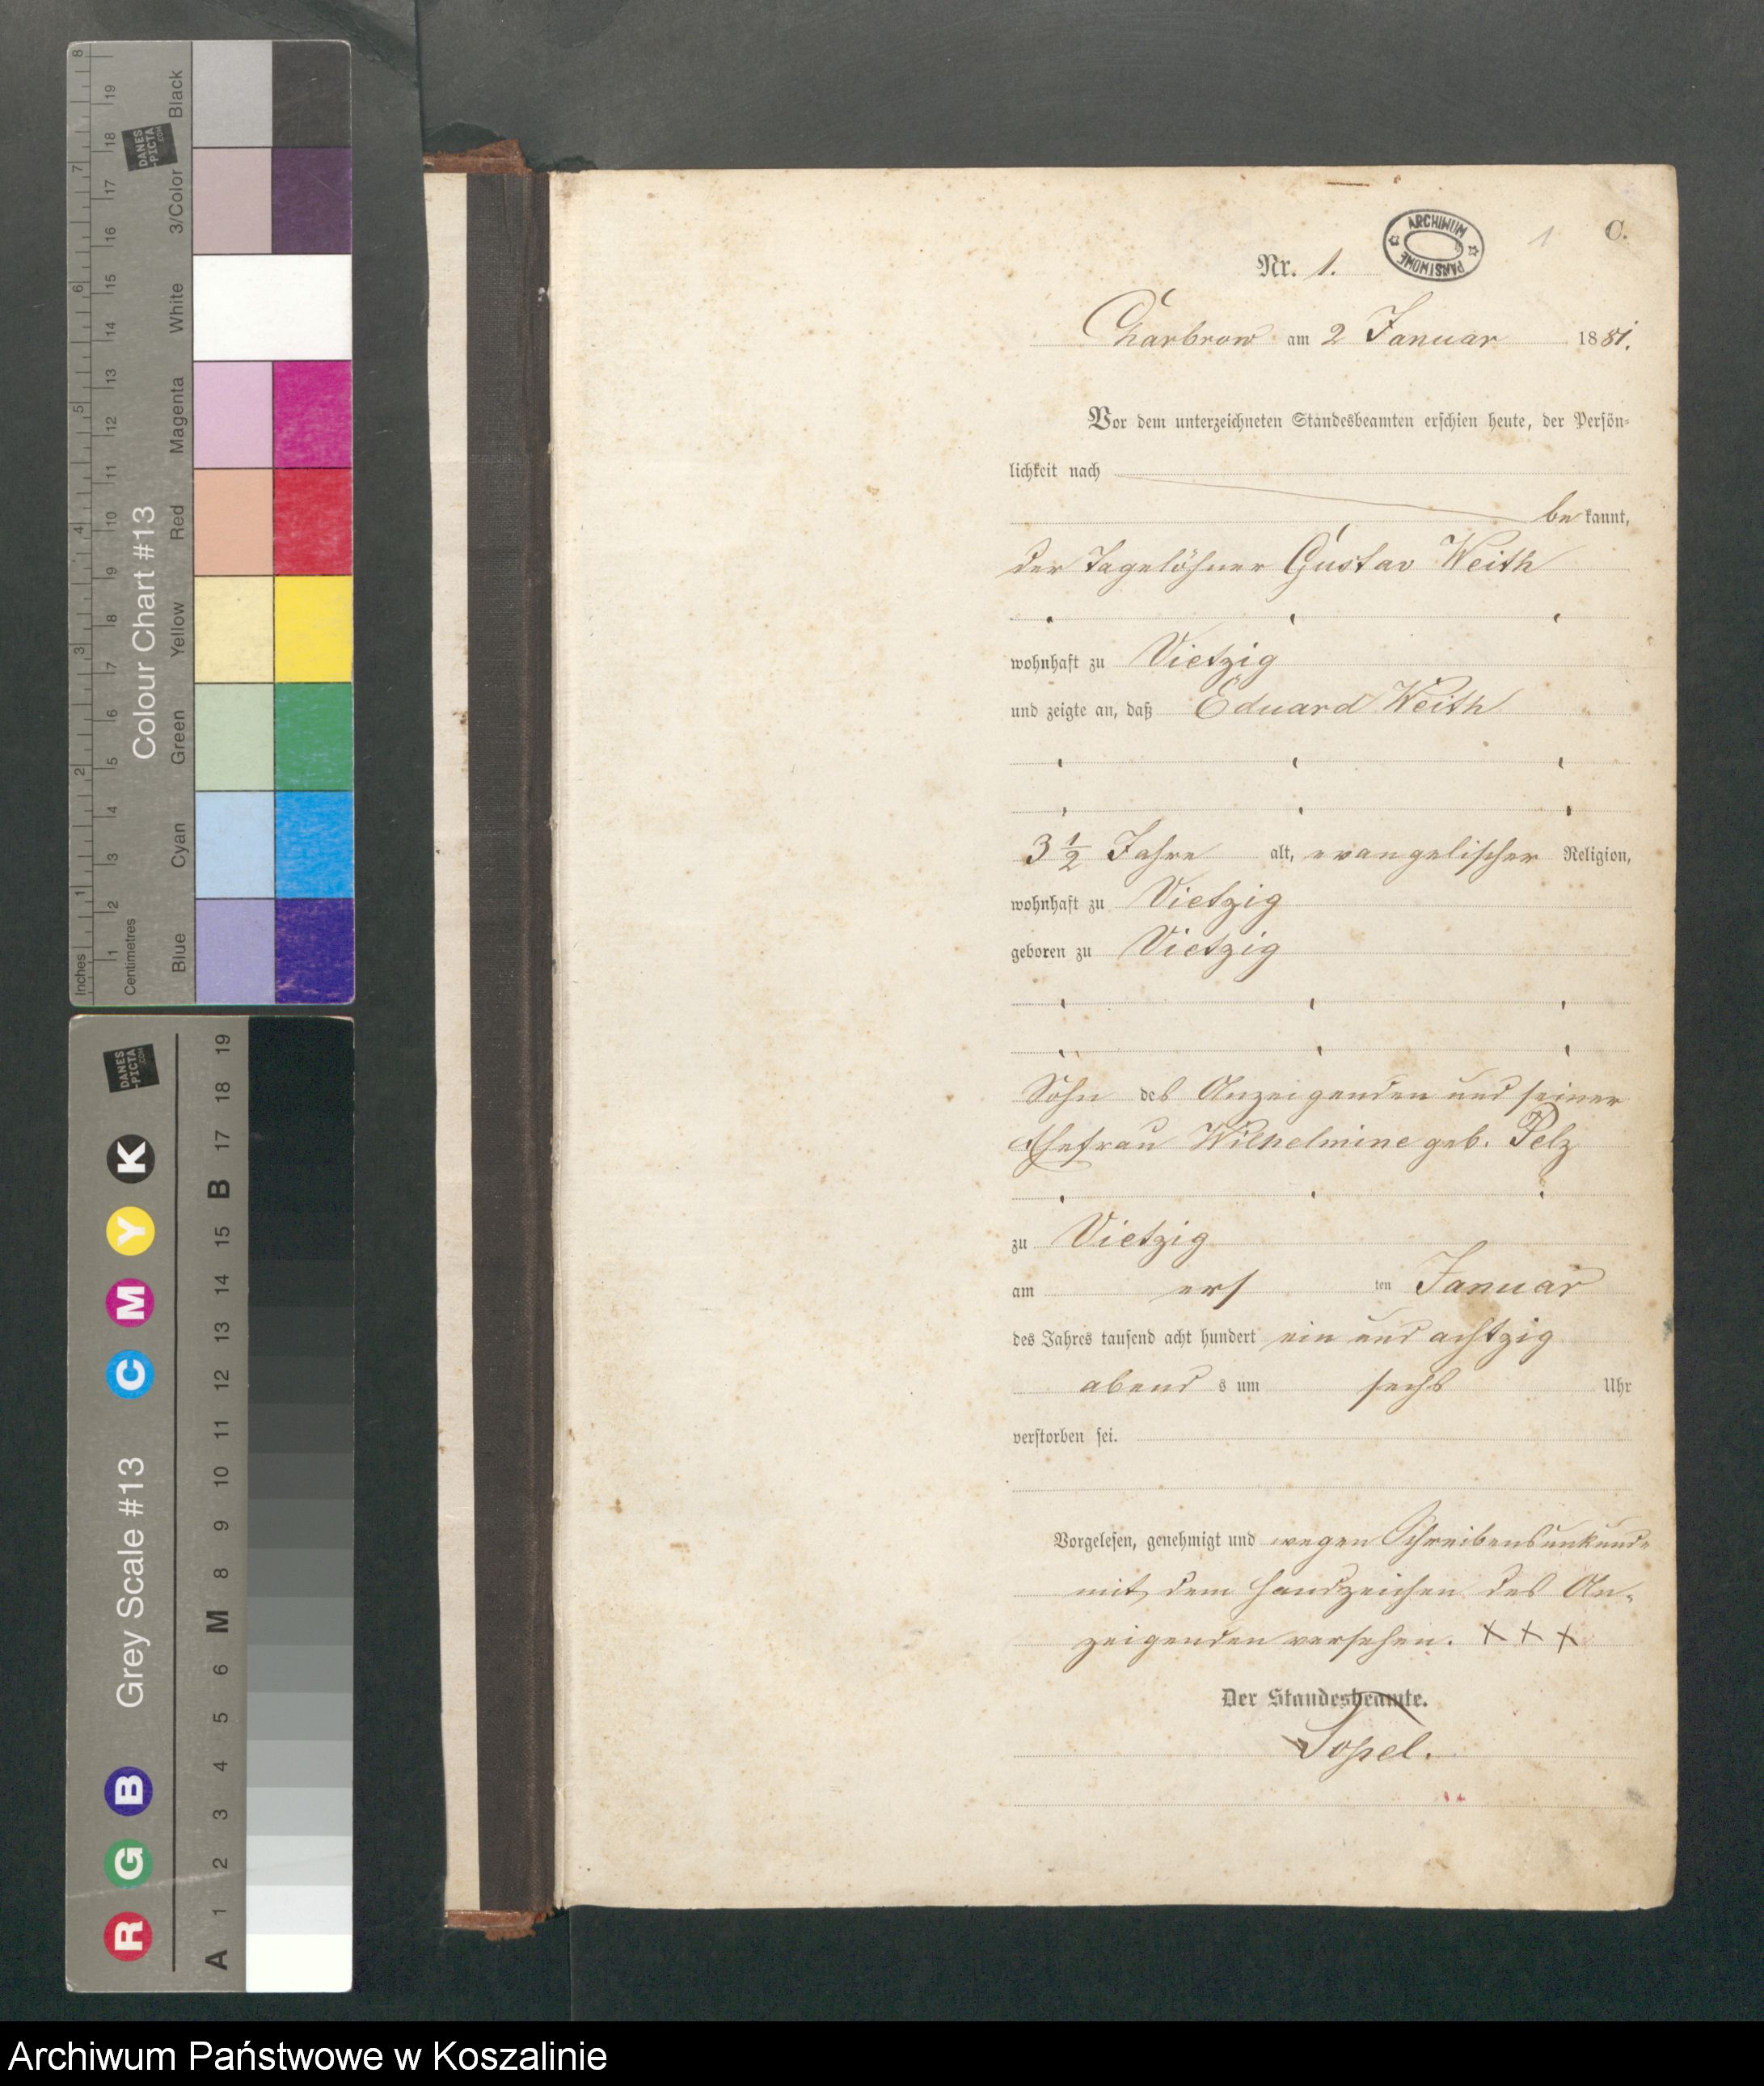 8
7
6
5
4
3
2
1
Inches
19
18
17
16
15
14
13
12
11
10
9
8
7
6
5
4
3
2
1
Centimetres
DANES
-PICTA
.COM
Colour Chart #13
Black
3/Color
White
Magenta
Red
Yellow
Green
Cyan
Blue
DANES
-PICTA
.COM
R G B C M Y K
Grey Scale #13
A 1 2 3 4 5 6 M 8 9 10 11 12 13 14 15 B 17 18 19
C.
1
ARCHIWUM
PAŃSTWOWE
Nr. 1.
Charbrow am 2 Januar 1881.
Vor dem unterzeichneten Standesbeamten erschien heute, der Persön-
lichkeit nach
be kannt,
der Tagelöhner Gustav Weith
wohnhaft zu Vietzig
und zeigte an, daß Eduard Weith
3 1/2 Jahre alt, evangelischer Religion,
wohnhaft zu Vietzig
geboren zu Vietzig
Sohn des Anzeigenden und seiner
Ehefrau Wilhelmine geb. Pelz
zu Vietzig
am ers ten Januar
des Jahres tausend acht hundert ein und achtzig
abend s um sechs Uhr
verstorben sei.
Vorgelesen, genehmigt und wegen Schreibensunkunde
mit dem Handzeichen des An-
zeigenden versehen. + + +
Der Standesbeamte.
Archiwum Państwowe w Koszalinie